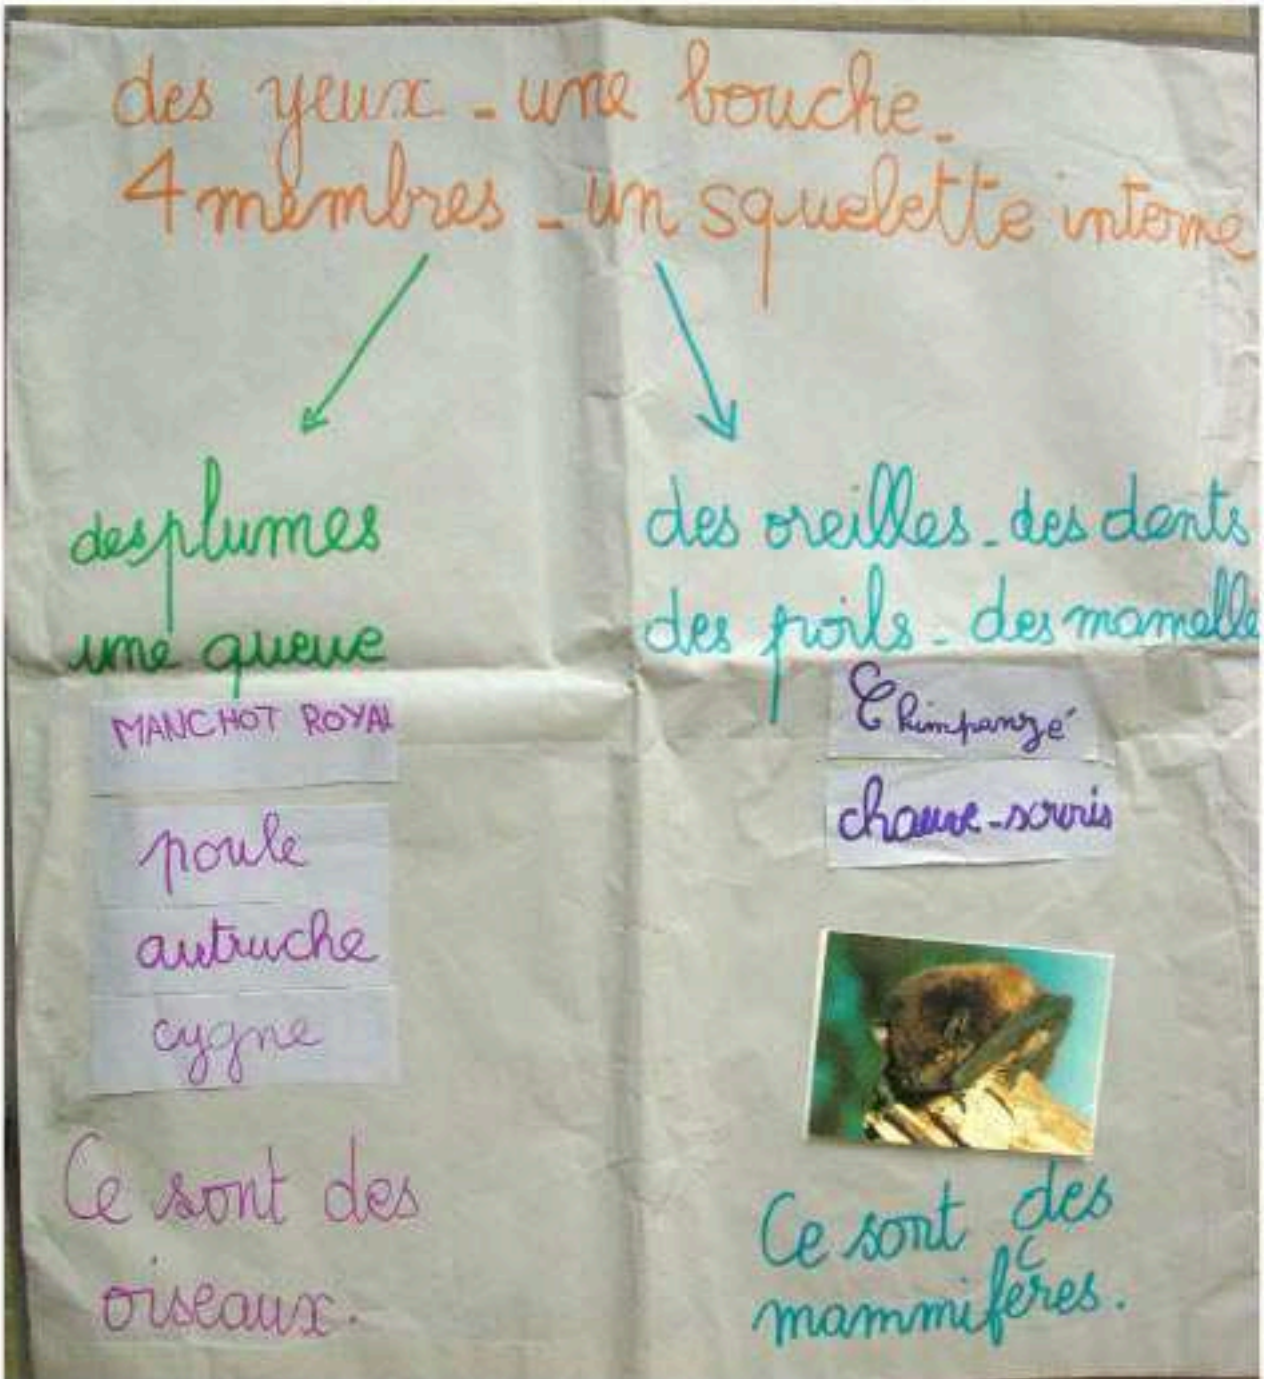 des yeux - une bouche -
4 membres - un squelette interne
des plumes
une queue
MANCHOT ROYAL
poule
autruche
cygne
Ce sont des
oiseaux.
des oreilles - des dents
des poils - des mamelle
Chimpanzé
chauve-souris
Ce sont des
mammifères.